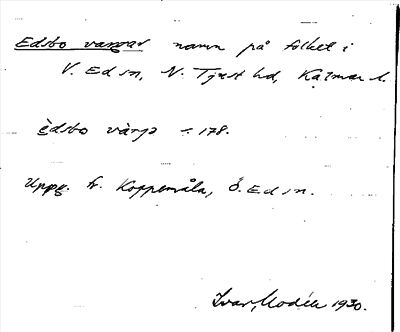 Edsbo vargar namn på folket i
V. Ed sn, N. Tjust hd, Kalmar l.
èdsbo vàrga s. 178.
Uppg. fr. Koppemåla, Ö. Ed sn.
Ivar Modéer 1930.